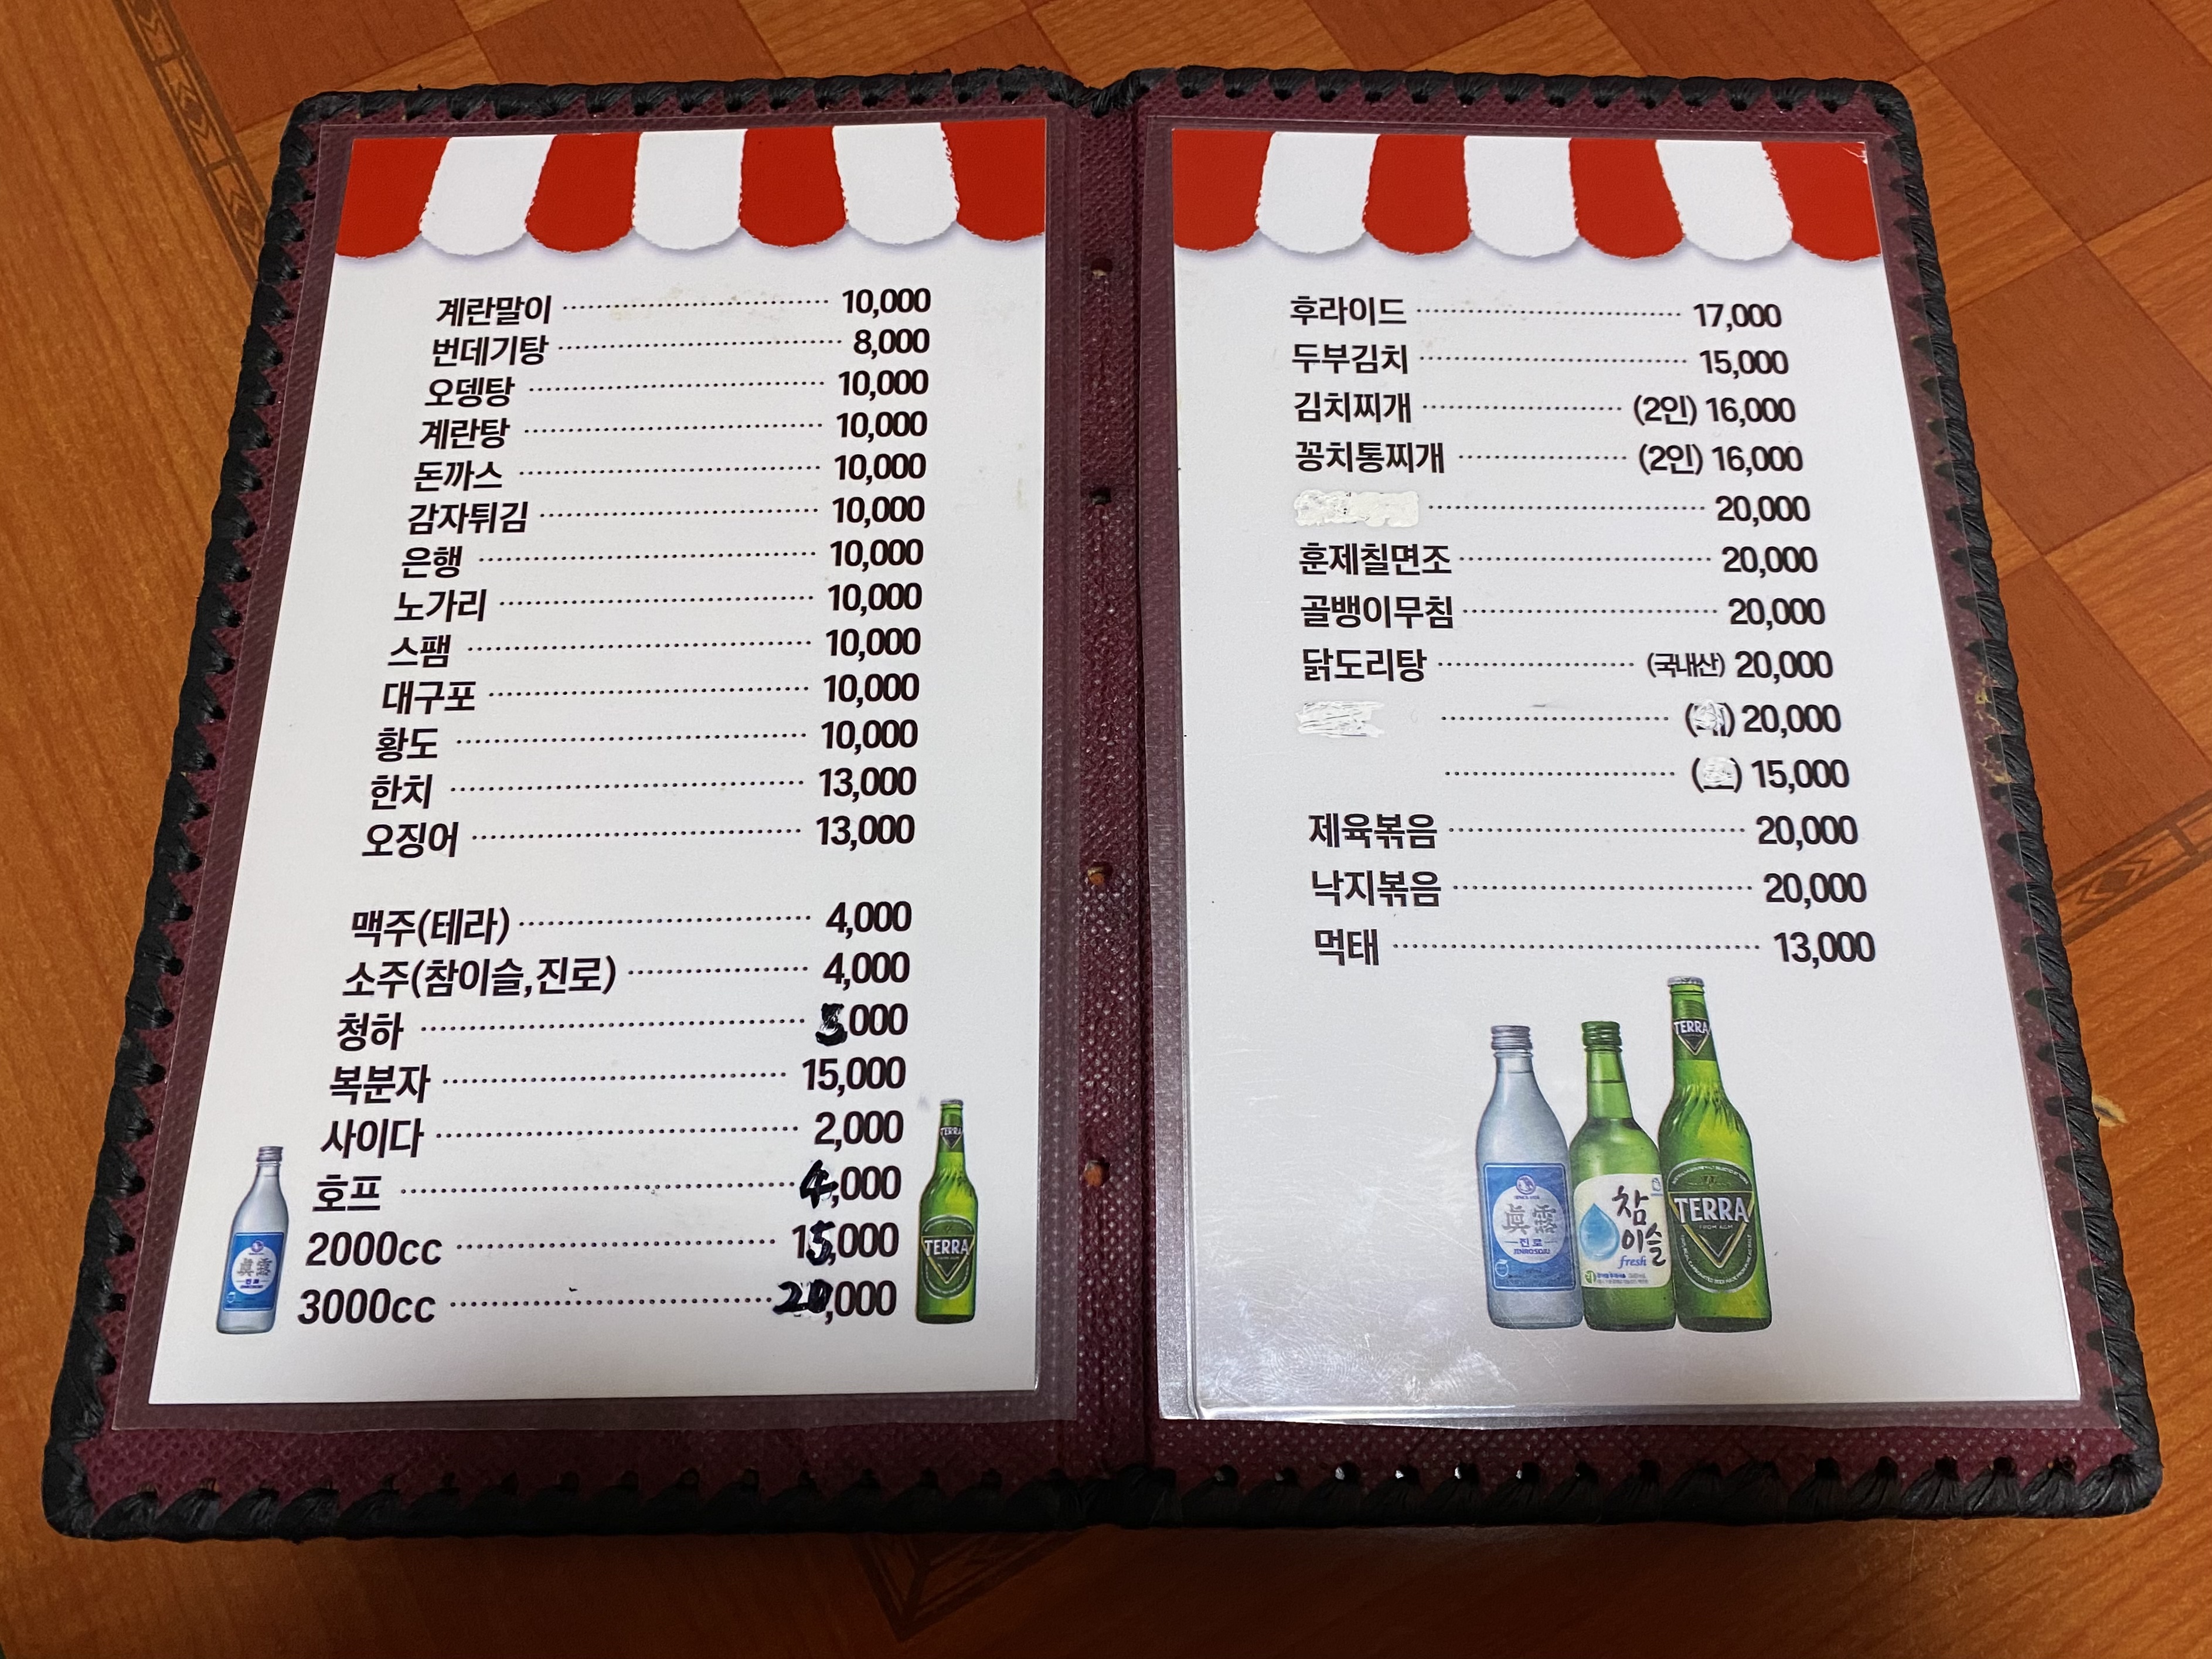 계란말이 10,000
번데기탕 8,000
오뎅탕 10,000
계란탕 10,000
돈까스 10,000
감자튀김 10,000
은행 10,000
노가리 10,000
스팸 10,000
대구포 10,000
황도 10,000
한치 13,000
오징어 13,000
맥주(테라) 4,000
소주(참이슬,진로) 4,000
청하 5,000
복분자 15,000
사이다 2,000
호프 4,000
2000cc 15,000
3000cc 20,000
眞露
진로
JINRO SOJU
TERRA
TERRA
후라이드 17,000
두부김치 15,000
김치찌개 (2인) 16,000
꽁치통찌개 (2인) 16,000
20,000
훈제칠면조 20,000
골뱅이무침 20,000
닭도리탕 (국내산) 20,000
20,000
15,000
제육볶음 20,000
낙지볶음 20,000
먹태 13,000
眞露
진로
JINRO SOJU
참이슬
fresh
TERRA
TERRA